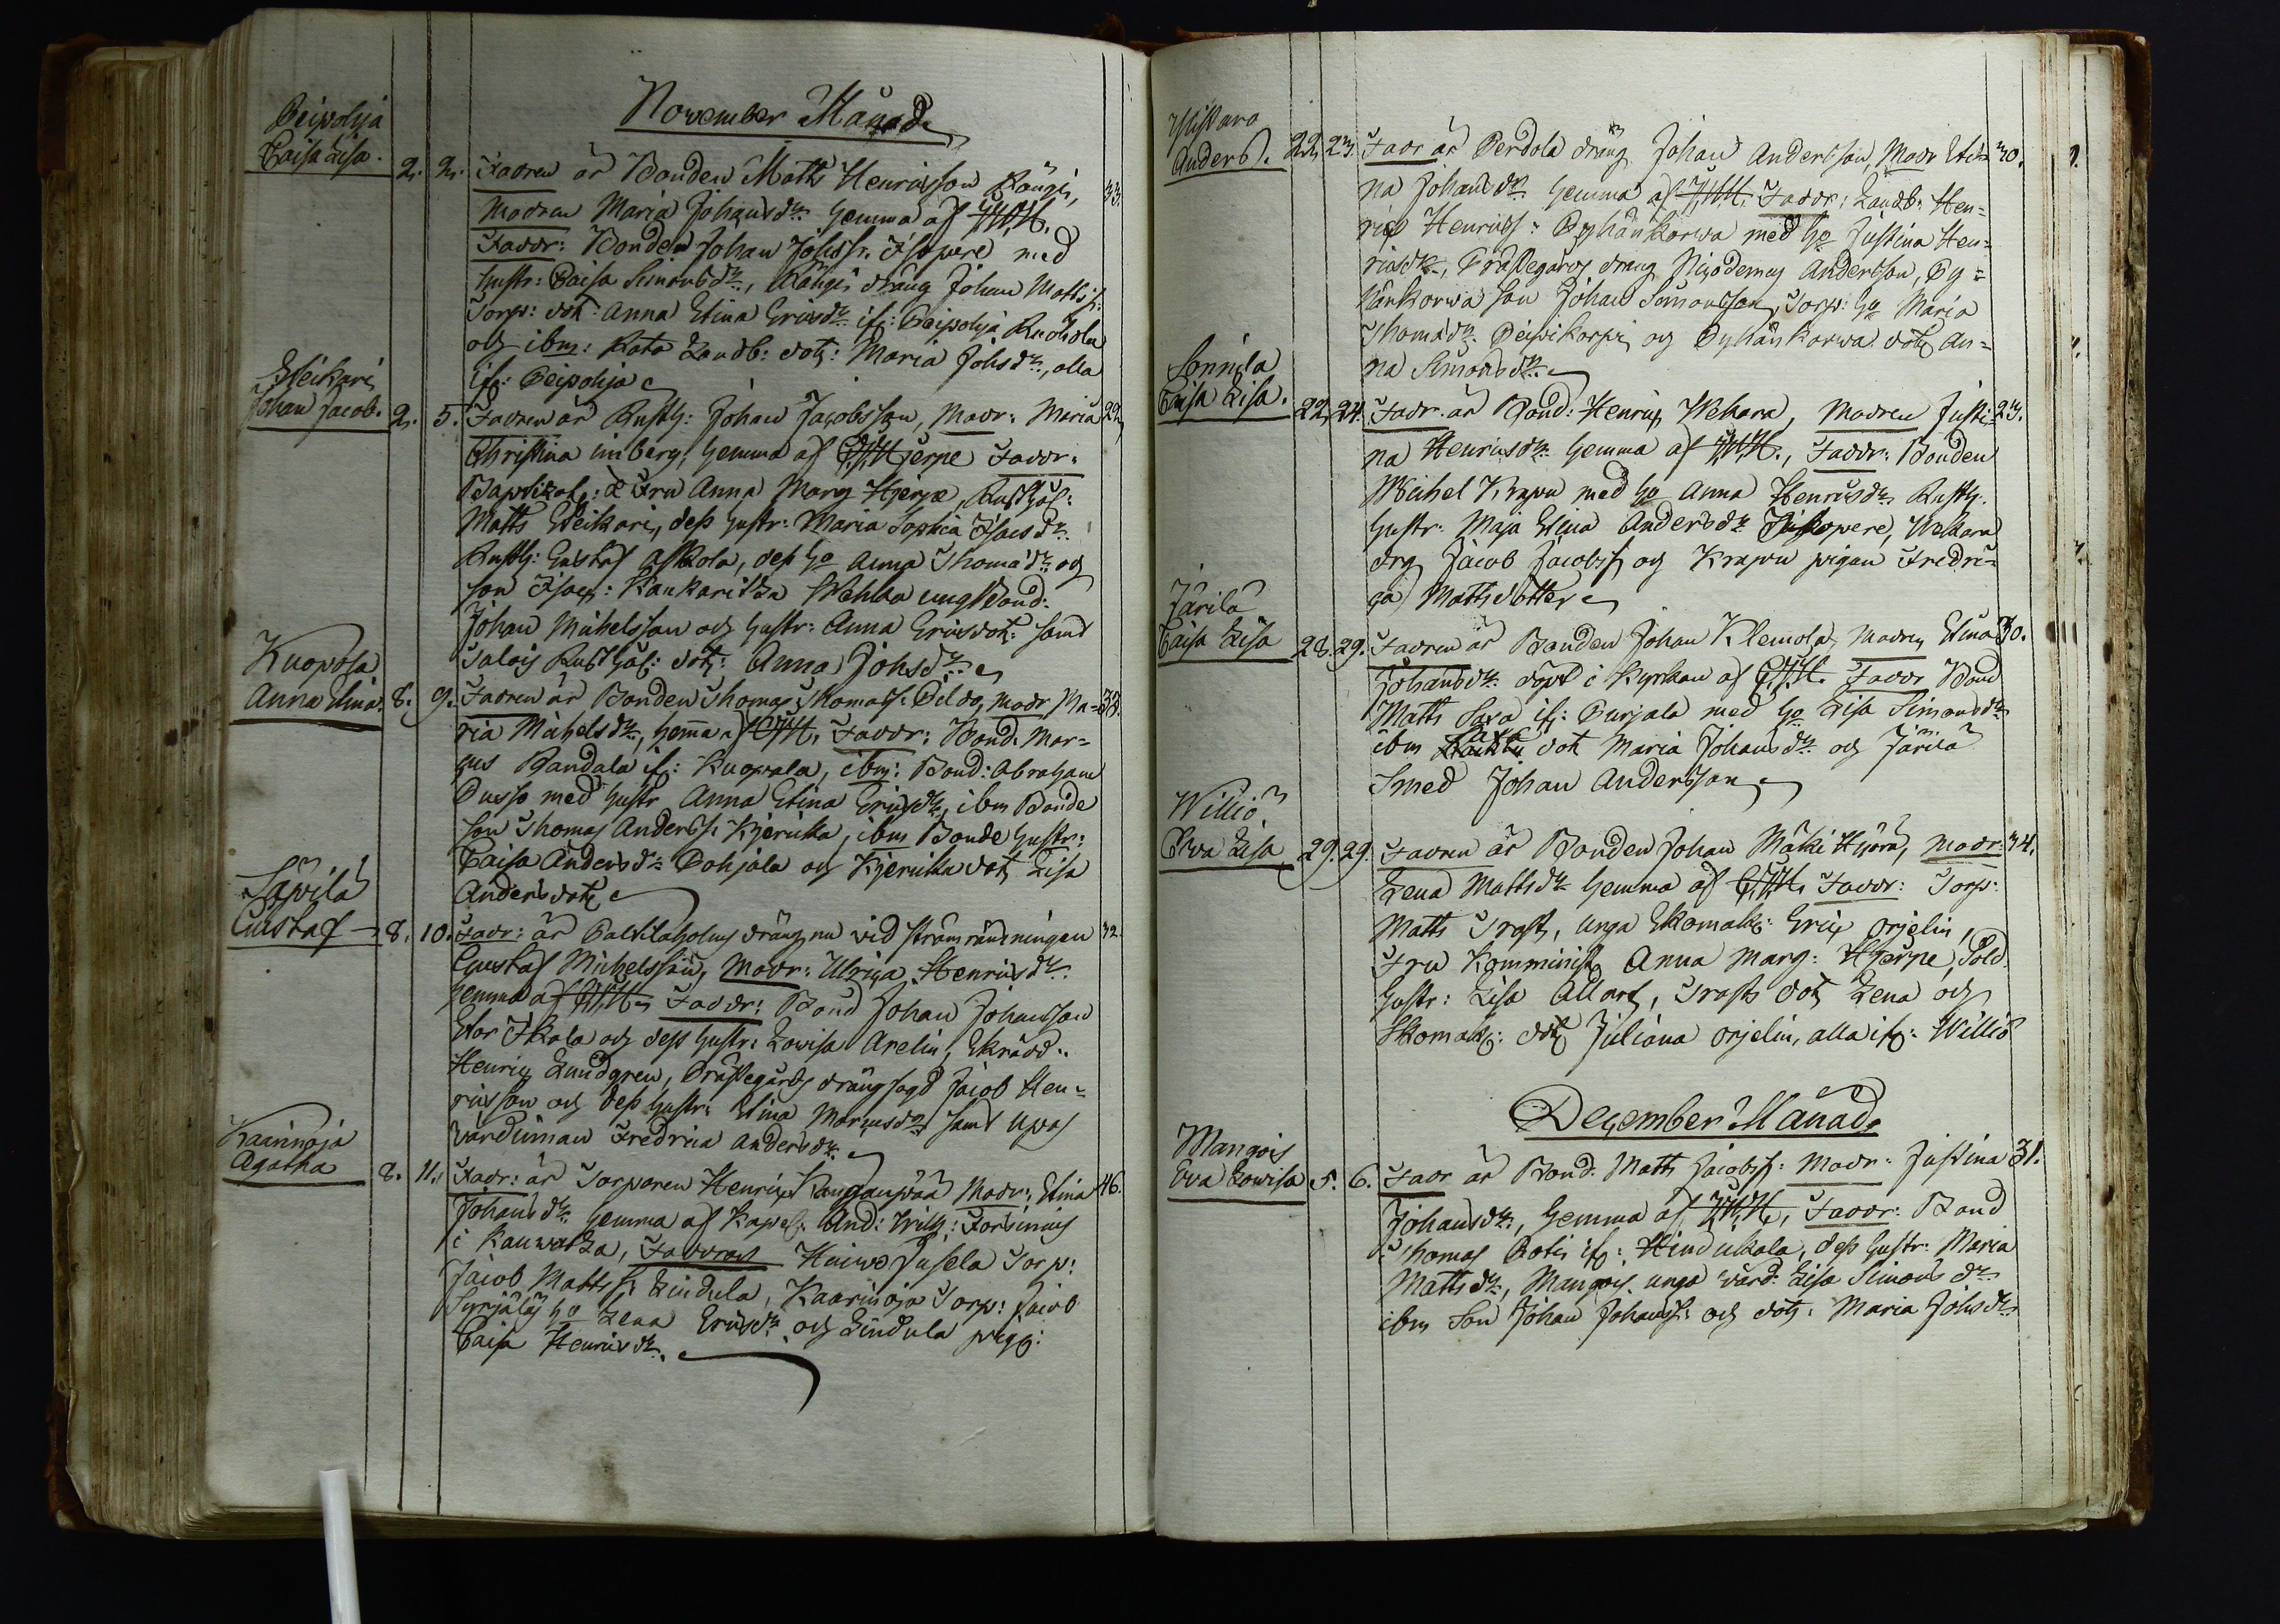 November Månad
Peipohja
Caisa Lisa.
2. 2. Fadren är Bonden Matts Henricsson Rängi, 33.
Modren Maria Johansdr. hemma af
Faddr: Bonden Johan Johssr. Isopere med
hustr: Caisa Simonsdr., Rängi dräng Johan Mattsss:
Torp: dott: Anna Stina Ericsdr. ifr: Peipohja
och ibm: Rota Landb: dotr: Maria Johsdr., alla
ifr: Peipohja
Steikari
Johan Jacob.
2. 5. Fadren är Rusth: Johan Jacobsson, Modr: Maria 22
Christina imberg, hemma af Hjerpe Faddr:
Fru Anna Marg Hjerpe, Rusthål:
Matts Steikari, dess hustr: Maria Sophia Isacsdr.
Rusth: Gustaf Askola, dess ho Anna Thomædr. och
son Isac: Kankaritza Wahlba ungebond:
Johan Michelsson och hustr: Anna Ericsdot: samt
Talois Rusthål: dotr: Anna Johsdr.
Kuopola
Anna Stina.
8. 9. Fadren är Bonden Thomas Thomass: Peldo, Modr Ma- 38.
ria Michelsdr., hemma af Faddr: Bond: Mar=
cus Bandala if: Kuopala, ibm: Bond: Abraham
Busso med hustr Anna Stina Ericsdr, ibm Bonde
son Thomas Anderss: Kjericka, ibm Bonde hustr:
Caisa Andersdr. Pohjala och Kjericka dotr Lisa
Andersdotr
Säpilä
Gustaf
8. 10. Fadr: är Palsilaholms dräng nu vid strömränsningen 32.
Gustaf Michelsson, Modr: Ulrica Henricsdr.
hemma af Faddr: Bond Johan Johansson
Stor Iskala och dess hustr: Lovisa Arelin, Skrädd:
Henric Lundgren, Prästegårds drängfogd Jacob Hen=
ricsson och dess hustr: Stina Marcusdr. samt
värdinnan Fredrica Andersdr.
Kaarinoja
Agatha
8. 11. Fadr: är Torparen Henric Kangaspää Modr: Stina 46.
Johansdr. hemma af Kapel: And: Wilh: Forsinius
i Kauvatza, Faddrar Huivo Jusela Torp:
Jacob Mattss: Lindula, Kaarinoja Torp: Jacob
Syrjäläs ho Lena Ericsdr. och Lindula pig:
Caisa Henricsdr.
Ylistaro
Anders.
22. 23. Fadr är Perdola dräng Johan Andersson, Modr Sti= 30.
na Johansdr. hemma af Faddr: Landb: Hen=
ric Henricss: Pyhänkorwa med ho Justina Hen=
ricsdr., Prästegårds dräng Nicodemus Andersson, Py=
hänkorwa son Johan Simonsson, Torp: ho Maria
Thomædr. Peipikorpi och Pyhänkorwa dotr An=
na Simonsdr.
Sonnila
Caisa Lisa.
22. 24. Fadr. är Bond: Henric Wekara, Modren Justi= 23.
na Henricsdr. hemma af Faddr: Bonden
Michel Krapu med ho Anna Henricsdr. Rusth:
hustr: Maja Stina Andersdr. Isopere, Wekara
drg Jacob Jacobss och Krapu pigan Fredri=
ca Mattsdotter
Järilä
Caisa Lisa
28. 29. Fadren är Bonden Johan Klemola, Modren Stina 30.
Johansdr. döpt i Kyrkan af Faddr Bond
Matts Saxa if: Purjala med ho Lisa Simonsdr
ibm Saxa dotr Maria Johansdr och Järilä
Smed Johan Andersson
Williö
Ewa Lisa
29. 29. Fadren är Bonden Johan Mäki Hjörä, Modr: 34.
Lena Mattsdr. hemma af Faddr: Torp:
Matts Trast, unga Skomak: Eric Orjelin,
Fru Komminist Anna Marg: Hjerpe, Sold.
hustr: Lisa Allart, Trasts dotr Lena och
Skomak: dotr Juliana Orjelin, alla ifr: Williö
December Månad.
Mangois
Eva Lovisa
5. 6. Fadr är Bond: Matts Jacobss: Modr: Justina 31.
Johansdr., hemma af Faddr: Bond
Thomas Koti ifr: Hindukala, dess hustr: Maria
Mattsdr, Mangois unga värd: Lisa Simonsdr
ibm Son Johan Johanss: och dotr: Maria Johsdr